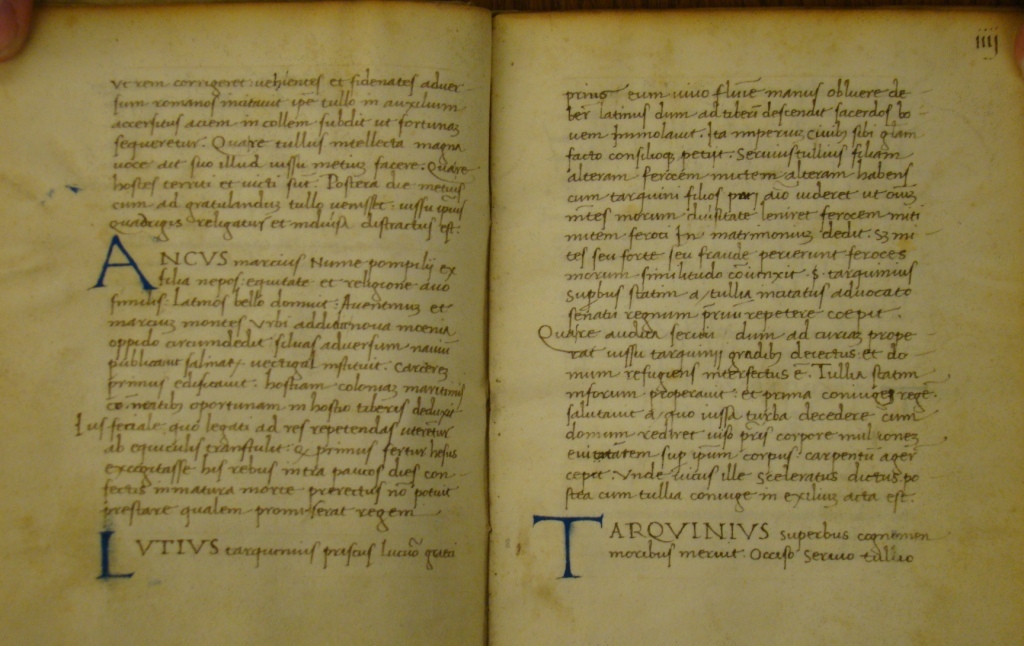 ut rem corrigeret uehientes et fidenates aduer
sum romanos incitauit ipe tullo in auxilium
accersitus aciem in collem subdit ut fortunaz
sequeretur. Quare tullus intellecta magna
uoce ait suo illud iussu metiuz facere: Quare
hostes territi et uicti sut: Postera die metius
cum ad gratulanduz tullo uenisset: iussu ipius
quadrigis religatus et indiuisa distractus est:
ANCVS marcius Nume pompilij ex
filia nepos: equitate et religione auo
similis: Latinos bello domuit: Auentinuz et
marciuz montes Vrbi addidit noua moenia
oppido circumdedit siluas ad usum nauiu
publicauit salinarz uectigal instituit. Carcerez
primus edificauit: hostiam coloniaz maritimis
comeatibz oportunam in hostio tiberis deduxit
Ius feciale: quo legati ad res repetendas uterentur
ab equiculis transtulit: qz primus fertur hesus
excogitasse his rebus intra paucos dies con-
fectis inmatura morte prerectus no potuit
prestare qualem promiserat regem
LVTIVS tarquinius priscus lucuo grati
iiij
prius eum uiuo fluie manus obluere de
ber latinus dum ad tiberi descendit sacerdos bo-
uem Immolauit. Ita imperiuz ciuibz sibi glam
facto consilioqz petijt. Seruius tullius filiam
alteram ferocem mitem alteram habens
cum tarquini filios pari aio uideret ut oiuz
mtes morum diuisitate leniret ferocem miti
mitem feroci In matrimoniuz dedit. Sz mi-
tes seu forte seu fraude perierunt feroces
morum similitudo coiunxit. S. tarquinius
superbus statim a tullia incitatus aduocato
senatu regnum prium repetere coepit.
Quare audita seruiu dum ad curiaz prope
rat iussu tarquinij gradibz deiectus et do-
mum refugiens interfectus e. Tullia statim
inforum properauit: et prima coniugez rege
salutauit a quo iussa turba decedere cum
domum rediret uiso pris corpore mulionez
euitatem sup ipum corpus: carpentu ager
cepit: Vnde uicus ille sceleratus dictus po
stea cum tullia coniuge in exiliuz acta est:
TARQVINIVS superbus cognomen
moribus meruit. Occiso Seruio tullio